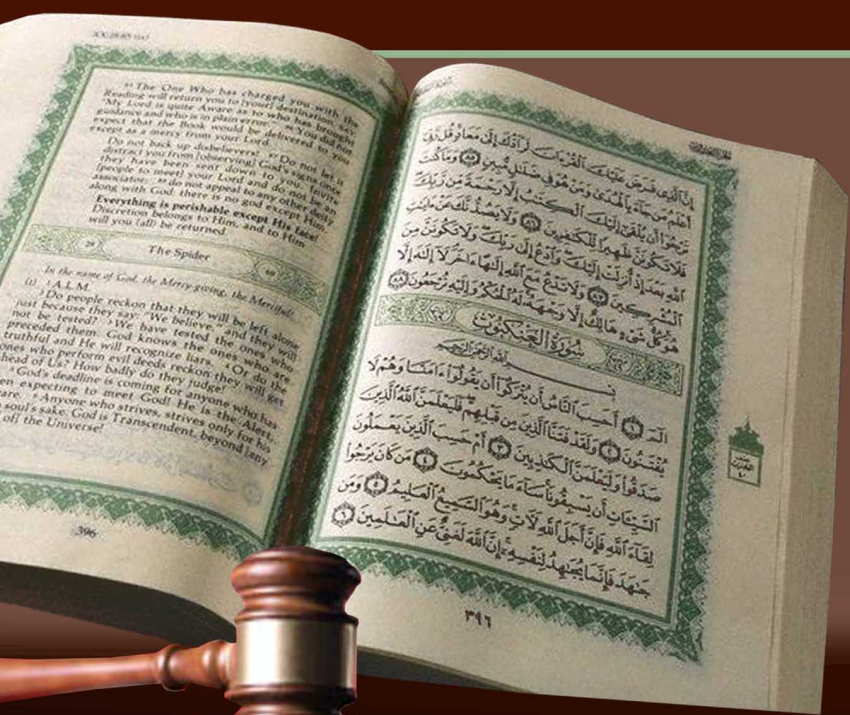 85 The One Who has charged you with the
Reading will return you to [your] destination." SAY:
"My Lord is quite Aware as to who has brought
guidance and who is in plain error." 86 You did not
expect that the Book would be delivered to you
except as a mercy from your Lord.
Do not back up disbelievers. 87 Do not let it
distract you from [observing] God's signs once
they have been sent down to you. Invite
[people to meet] your Lord and do not be an
associator. 88 do not appeal to any other deity
along with God: there is no god except Him!
Everything is perishable except His face!
Discretion belongs to Him, and to Him
will you (all) be returned.
The Spider
In the name of God, the Mercy-giving, the Merciful!
(i) 1 A.L.M.
2 Do people reckon that they will be left alone
just because they say: "We believe," and they will
not be tested? 3 We have tested the ones who
preceded them. God knows the ones who are
truthful and He will recognize liars. 4 Or do the
ones who perform evil deeds reckon they will get
ahead of Us? How badly do they judge!
5 God's deadline is coming for anyone who has
en expecting to meet God! He is the Alert,
are. 6 Anyone who strives, strives only for his
soul's sake. God is Transcendent, beyond [any
off the Universe!
396
إِنَّ ٱلَّذِى فَرَضَ عَلَيْكَ ٱلْقُرْءَانَ لَرَآدُّكَ إِلَىٰ مَعَادٍ قُل رَّبِّىٓ
أَعْلَمُ مَن جَآءَ بِٱلْهُدَىٰ وَمَنْ هُوَ فِى ضَلَٰلٍ مُّبِينٍ ٨٥ وَمَا كُنتَ
تَرْجُوٓا۟ أَن يُلْقَىٰٓ إِلَيْكَ ٱلْكِتَٰبُ إِلَّا رَحْمَةً مِّن رَّبِّكَ
فَلَا تَكُونَنَّ ظَهِيرًا لِّلْكَٰفِرِينَ ٨٦ وَلَا يَصُدُّنَّكَ عَنْ ءَايَٰتِ
ٱللَّهِ بَعْدَ إِذْ أُنزِلَتْ إِلَيْكَ وَٱدْعُ إِلَىٰ رَبِّكَ وَلَا تَكُونَنَّ مِنَ
ٱلْمُشْرِكِينَ ٨٧ وَلَا تَدْعُ مَعَ ٱللَّهِ إِلَٰهًا ءَاخَرَ لَآ إِلَٰهَ إِلَّا
هُوَ كُلُّ شَىْءٍ هَالِكٌ إِلَّا وَجْهَهُۥ لَهُ ٱلْحُكْمُ وَإِلَيْهِ تُرْجَعُونَ ٨٨
سُورَةُ الْعَنْكَبُوتِ
بِسْمِ ٱللَّهِ ٱلرَّحْمَٰنِ ٱلرَّحِيمِ
الٓمٓ ١ أَحَسِبَ ٱلنَّاسُ أَن يُتْرَكُوٓا۟ أَن يَقُولُوٓا۟ ءَامَنَّا وَهُمْ لَا
يُفْتَنُونَ ٢ وَلَقَدْ فَتَنَّا ٱلَّذِينَ مِن قَبْلِهِمْ فَلَيَعْلَمَنَّ ٱللَّهُ ٱلَّذِينَ
صَدَقُوا۟ وَلَيَعْلَمَنَّ ٱلْكَٰذِبِينَ ٣ أَمْ حَسِبَ ٱلَّذِينَ يَعْمَلُونَ
ٱلسَّيِّـَٔاتِ أَن يَسْبِقُونَا سَآءَ مَا يَحْكُمُونَ ٤ مَن كَانَ يَرْجُوا۟
لِقَآءَ ٱللَّهِ فَإِنَّ أَجَلَ ٱللَّهِ لَـَٔاتٍ وَهُوَ ٱلسَّمِيعُ ٱلْعَلِيمُ ٥ وَمَن
جَٰهَدَ فَإِنَّمَا يُجَٰهِدُ لِنَفْسِهِۦٓ إِنَّ ٱللَّهَ لَغَنِىٌّ عَنِ ٱلْعَٰلَمِينَ ٦
٣٩٦